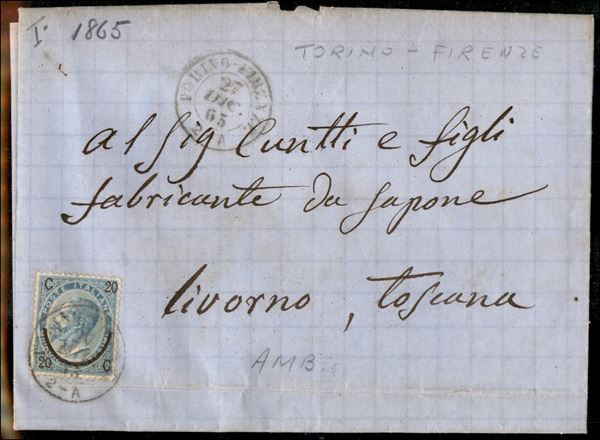 I. 1865
TORINO - FIRENZE
TORINO-FIRENZE
27
DIC
65
2 A
al Sig Cuntti e figli
fabricante da Sapone
livorno, Toscana
C 20
POSTE ITALIANE
20 C
2-A
AMB.